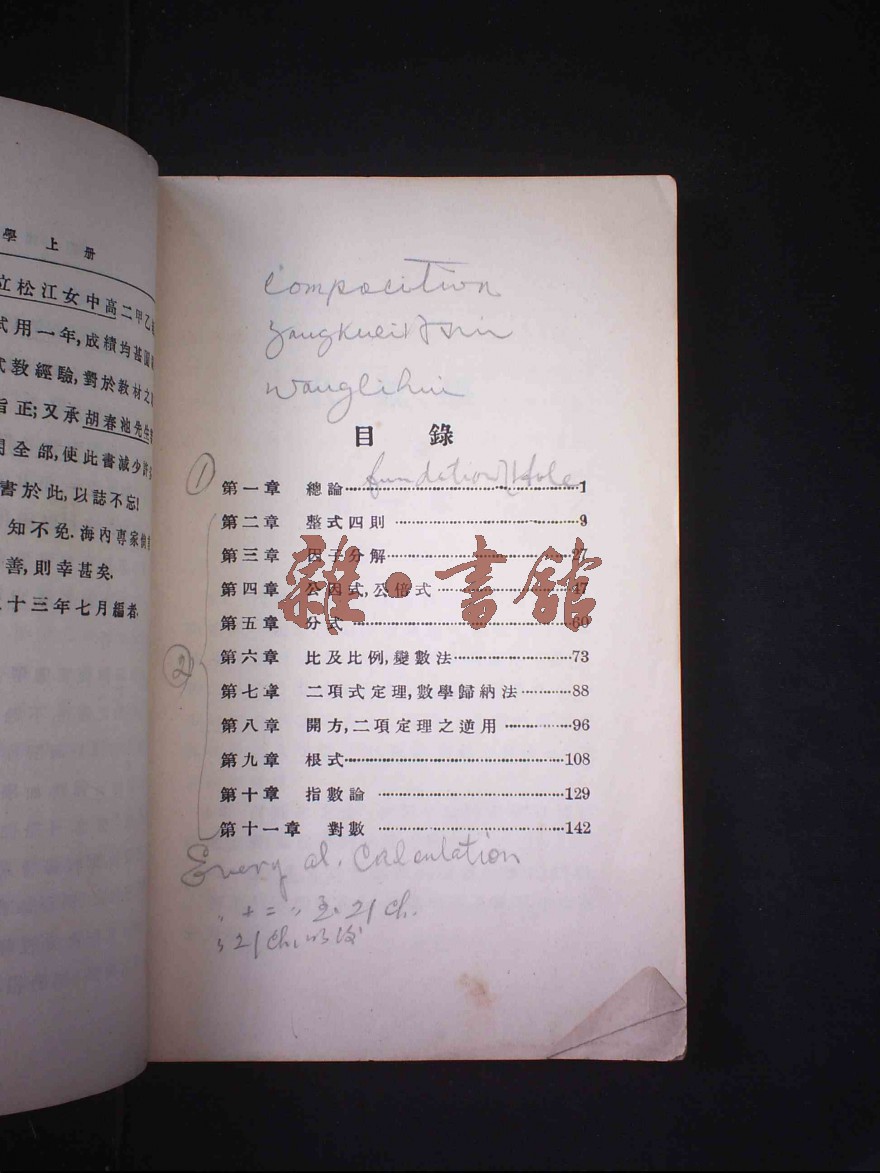 學上册
立松江女中高二甲乙
試用一年,成績均甚圓
式教經驗,對於教材之
旨正;又承胡春池先生
閱全部,使此書減少許
書於此,以誌不忘!
知不免.海內專家
善,則幸甚矣.
三十三年七月編者.
compocition
wanglihui
目錄
① 第一章 總論 fundation 1
第二章 整式四則 9
第三章 因子分解 27
第四章 公因式,公倍式 47
第五章 分式 60
② 第六章 比及比例,變數法 73
第七章 二項式定理,數學歸納法 88
第八章 開方,二項定理之逆用 96
第九章 根式 108
第十章 指數論 129
第十一章 對數 142
Every al. calculation
十二 至 21 ch.
21 ch. 以後
雜·書館